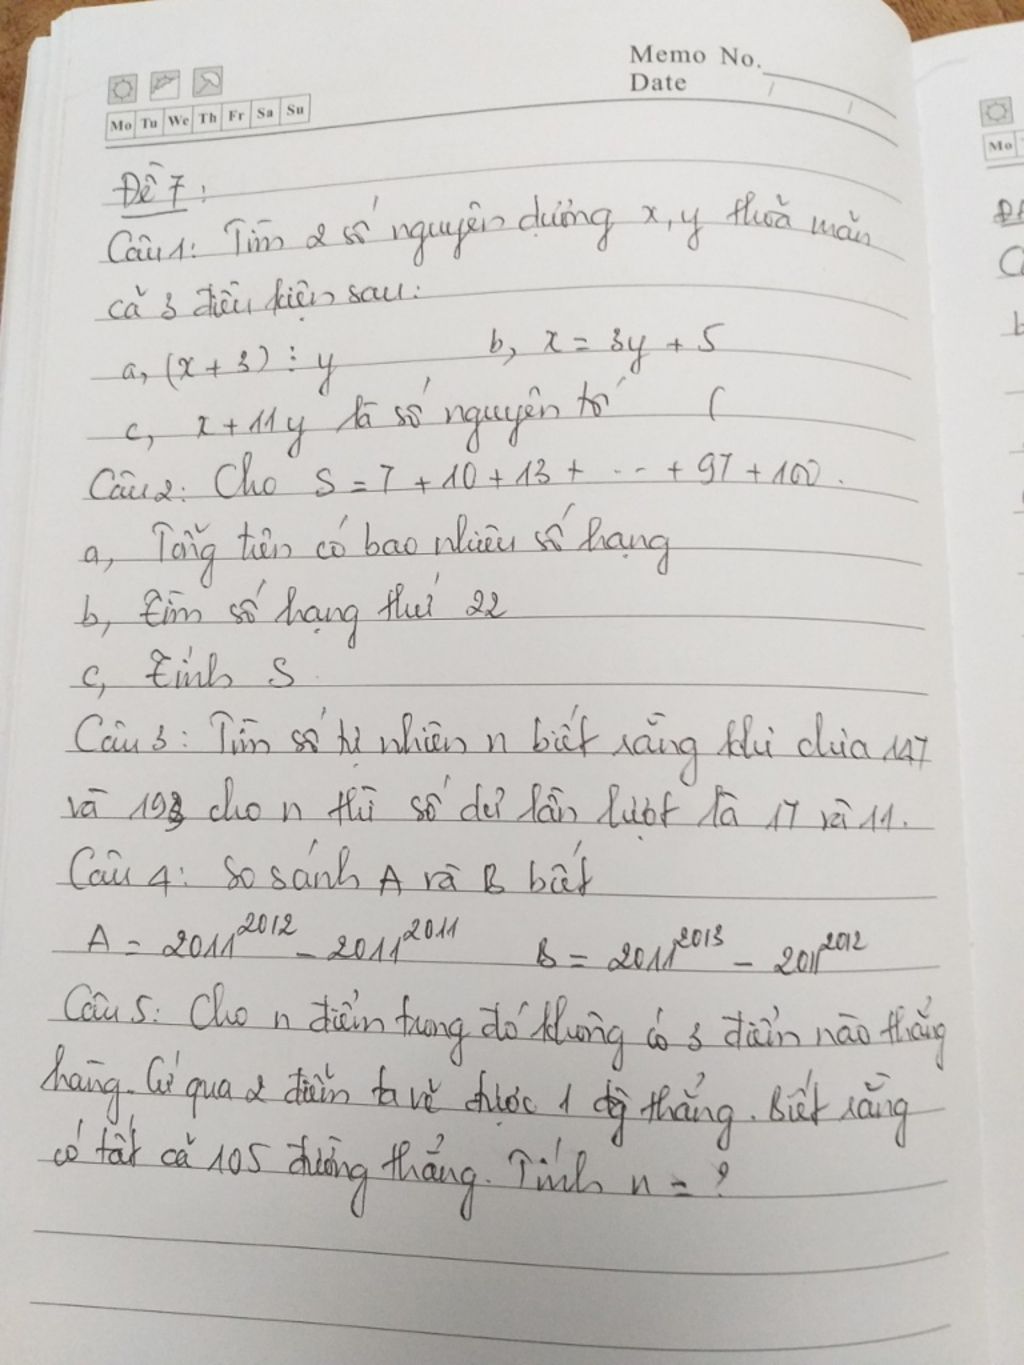 Memo No.
Date
Mo Tu We Th Fr Sa Su
Mo
Đề 7:
Câu 1: Tìm 2 số nguyên dương x, y thoả mãn
cả 3 điều kiện sau:
a, (x + 3) ⋮ y b, x = 3y + 5
c, x + 11y là số nguyên tố (
Câu 2: Cho S = 7 + 10 + 13 + ... + 97 + 100.
a, Tổng trên có bao nhiêu số hạng
b, Tìm số hạng thứ 22
c, Tính S
Câu 3: Tìm số tự nhiên n biết rằng khi chia 147
và 193 cho n thì số dư lần lượt là 17 và 11.
Câu 4: So sánh A và B biết
A = 2011^2012 - 2011^2011 B = 2011^2013 - 2011^2012
Câu 5: Cho n điểm trong đó không có 3 điểm nào thẳng
hàng. Cứ qua 2 điểm ta vẽ được 1 đg thẳng. Biết rằng
có tất cả 105 đường thẳng. Tính n = ?